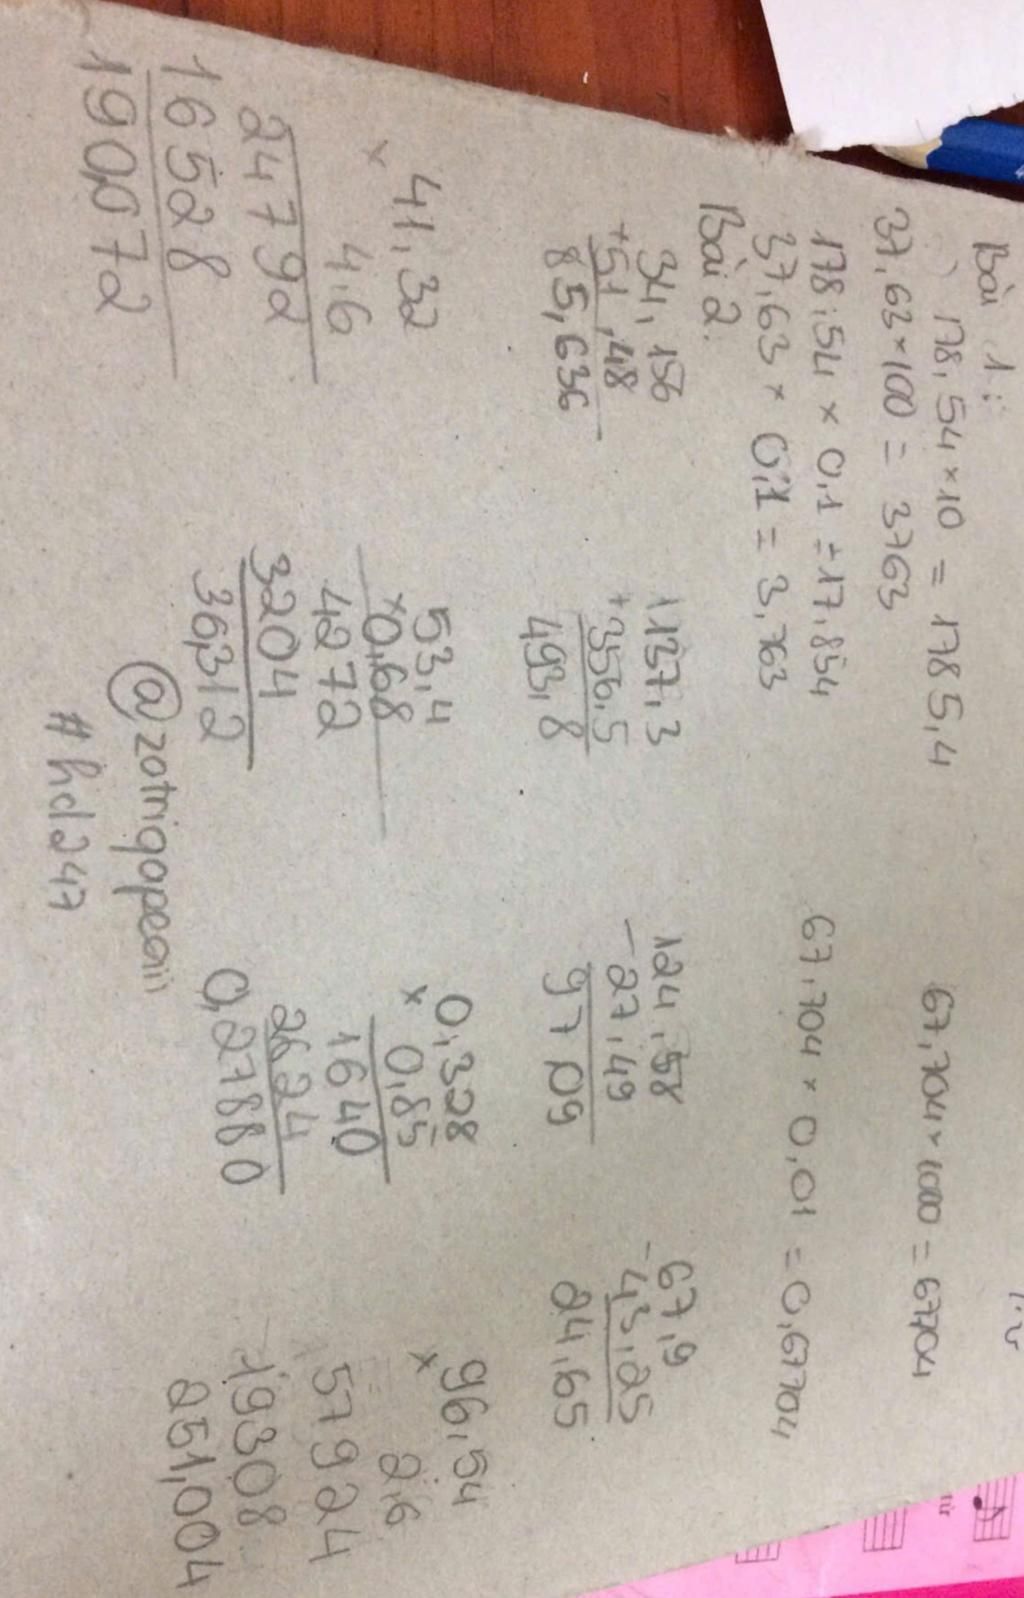 Bài 1:
178,54 × 10 = 1785,4
67,704 × 1000 = 67704
37,63 × 100 = 3763
178,54 × 0,1 = 17,854
67,704 × 0,01 = 0,67704
37,63 × 0,1 = 3,763
Bài 2:
34,156
+ 51,48
85,636
1137,3
+ 356,5
493,8
124,58
- 27,49
97 09
67,9
- 43,25
24,65
41,32
×
4,6
24792
16528
190,072
53,4
× 0,68
4272
3204
36,312
0,328
× 0,85
1640
2624
0,27880
96,54
×
2,6
57924
19308
251,004
@zotrigopeaiii
#hd247